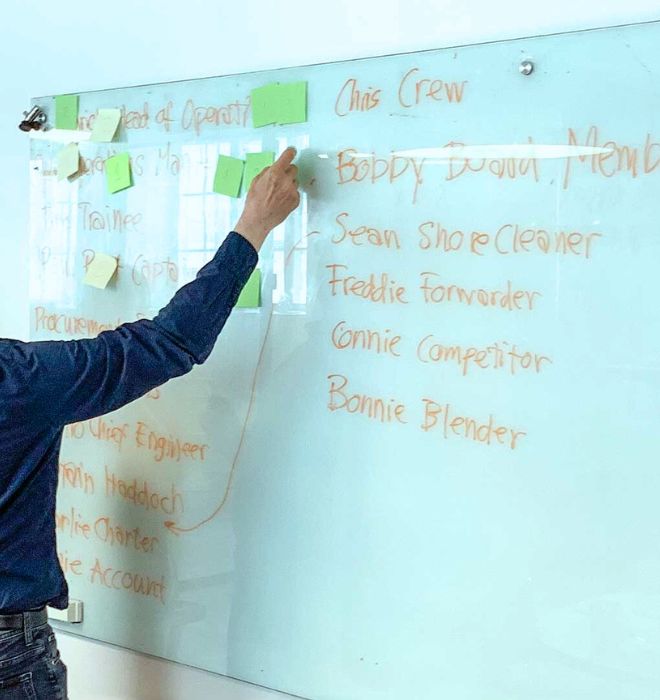 Head of Operat
Trainee
Procurement
Chief Engineer
Haddoch
Charter
Account
Chris Crew
Bobby Board Memb
Sean Shore Cleaner
Freddie Forwarder
Connie Competitor
Bonnie Blender